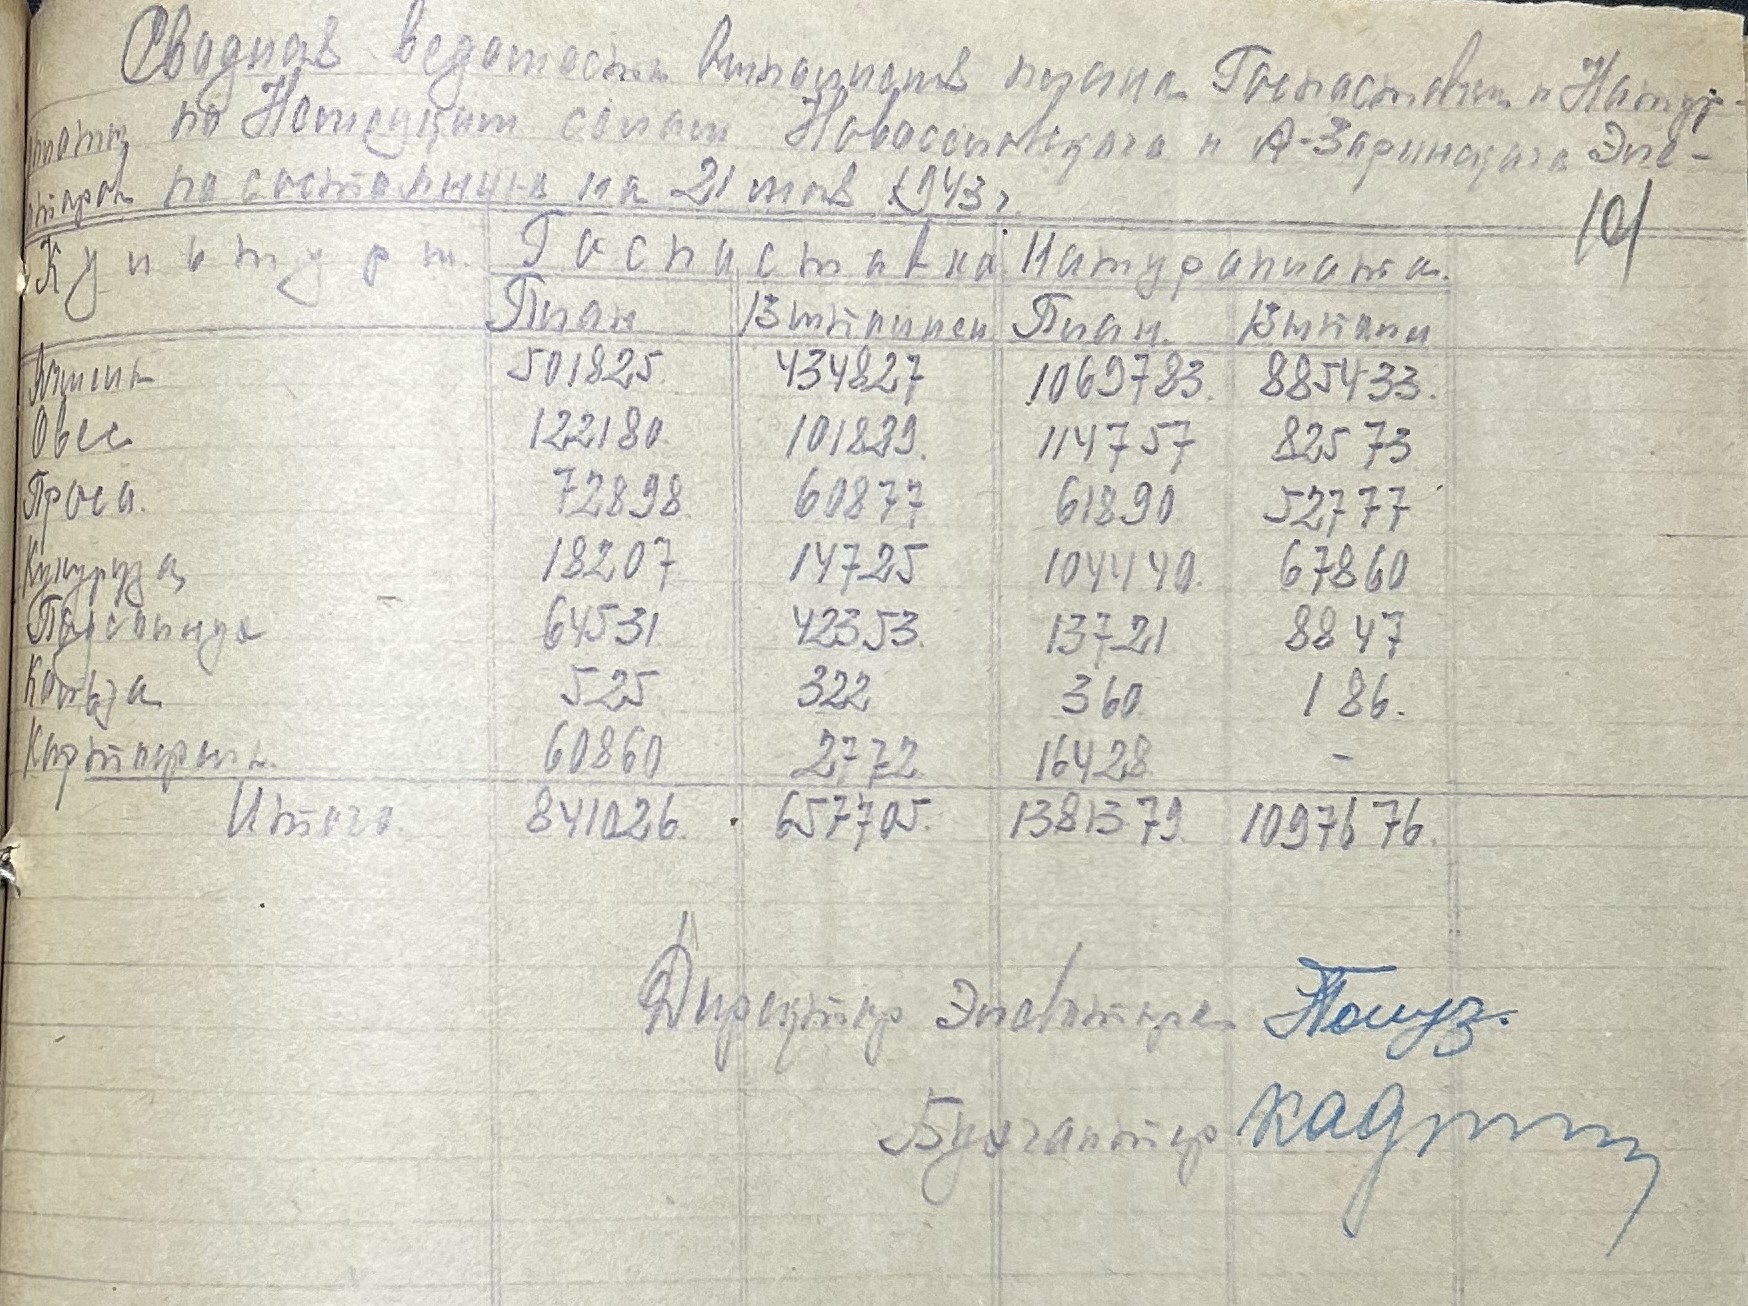 Сводная ведомость выполнения плана Госпоставки и Натур-
оплаты по Немецким селам Новосельского и А-Заринского Эле-
ватора по состоянию на 21 мая 1943 г.
101
Культуры. Госпоставка Натуроплата.
План Выполнен План. Выполн
Ячмень 501825. 434827 1069783. 885433.
Овес 122180 101889. 114757 82573
Проса. 72898 60877 61890 52777
Кукуруза 18207 14725 104440. 67860
Подсолнух 64531 42353. 13721 8847
Кольза 525 322 360 186.
Картофель. 60860 2772 16428 -
Итого. 841026. 657705. 1381379. 1097676.
Директор Элеватора
Бухгалтер